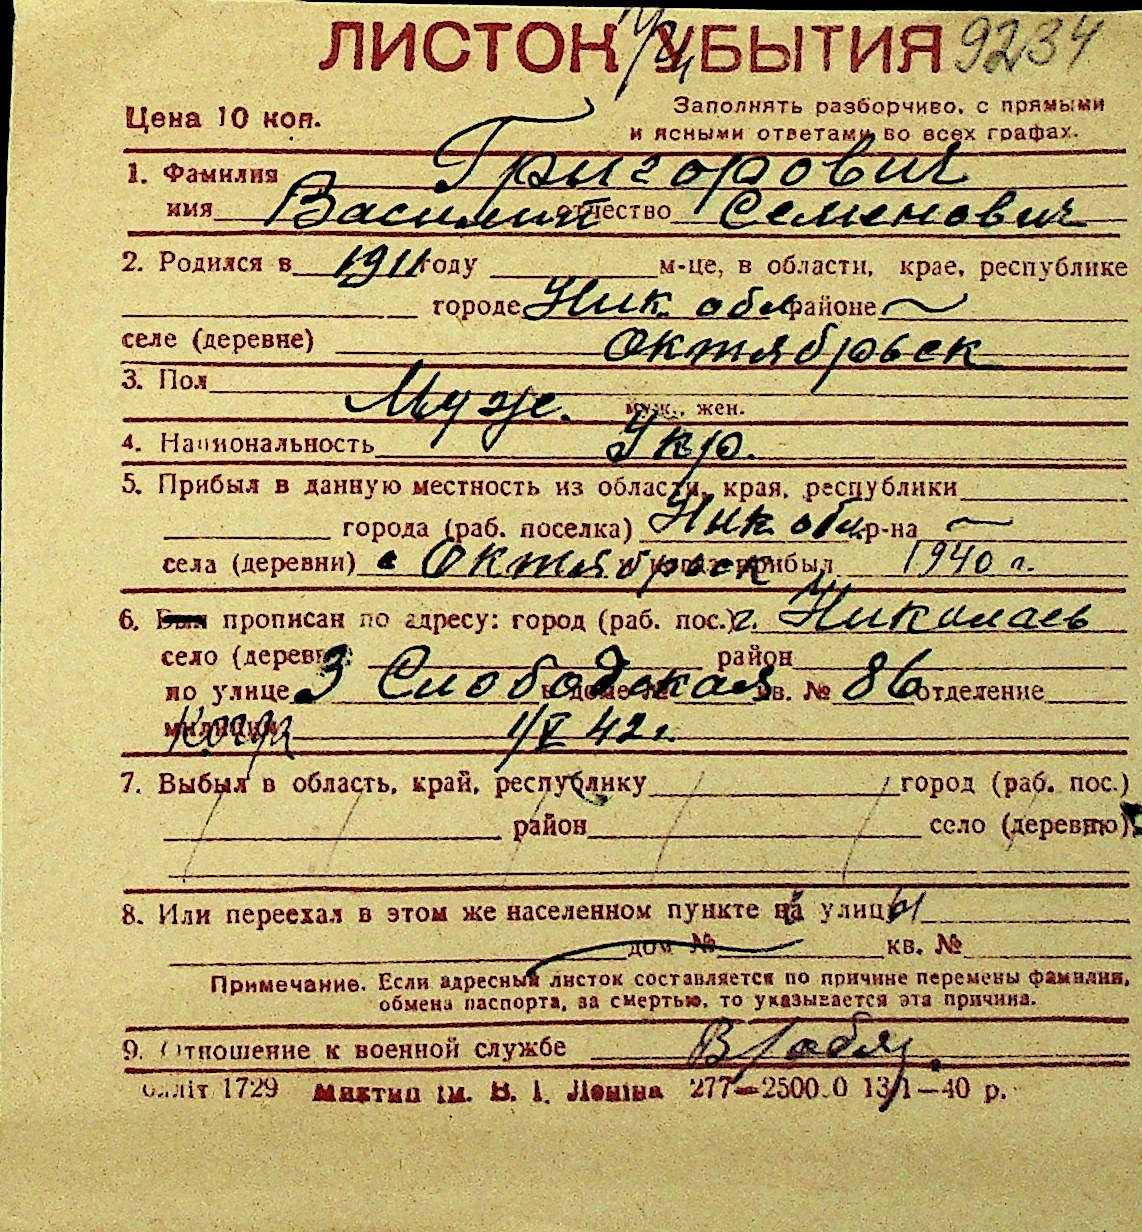 ЛИСТОК УБЫТИЯ 9234
Цена 10 коп. Заполнять разборчиво, с прямыми
и ясными ответами во всех графах.
1. Фамилия Григорович
имя Василий отчество Семенович
2. Родился в 1911 году м-це, в области, крае, республике
городе Ник. обл районе ~
селе (деревне) Октябрьск
3. Пол Муж. муж., жен.
4. Национальность Укр.
5. Прибыл в данную местность из области, края, республики
города (раб. поселка) Ник. обл. р-на ~
села (деревни) с Октябрьск и когда прибыл 1940 г.
6. Был прописан по адресу: город (раб. пос.) г. Николаев
село (деревня) район
по улице 3 Слободская в доме № кв. № 86 отделение
милиции Когда 1/V 42 г.
7. Выбыл в область, край, республику город (раб. пос.)
район село (деревню)
8. Или переехал в этом же населенном пункте на улицу
дом № кв. №
Примечание. Если адресный листок составляется по причине перемены фамилии,
обмена паспорта, за смертью, то указывается эта причина.
9. Отношение к военной службе В/обяз.
блліт 1729 Миктип ім. В. І. Леніна 277—2500.0 13/1—40 р.